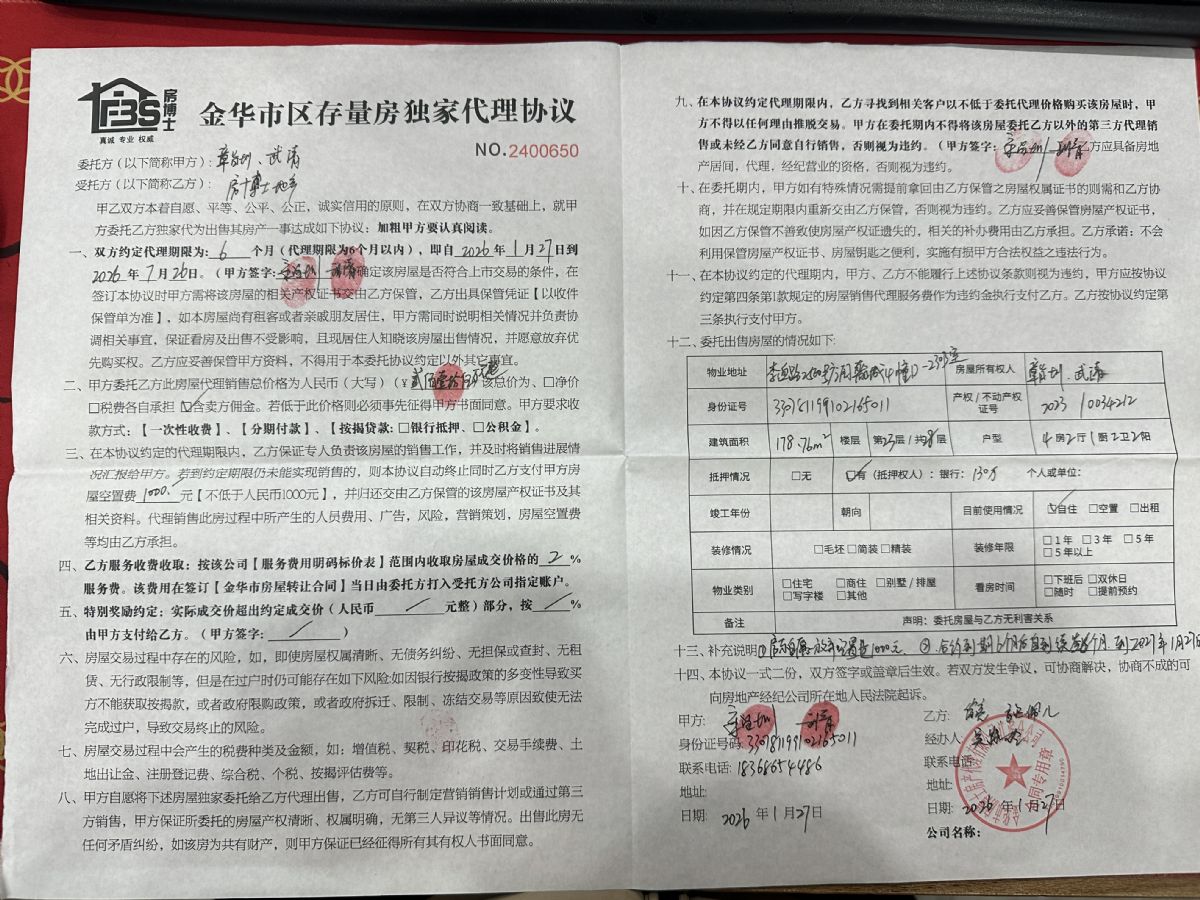 FBS
房博士
真诚 专业 权威
金华市区存量房独家代理协议
NO.2400650
委托方（以下简称甲方）：
受托方（以下简称乙方）：房博士地产
甲乙双方本着自愿、平等、公平、公正，诚实信用的原则，在双方协商一致基础上，就甲
方委托乙方独家代为出售其房产一事达成如下协议：加粗甲方要认真阅读。
一、双方约定代理期限为：6 个月（代理期限为6个月以内），即自 2026 年 1 月 27 日到
2026 年 7 月 26 日。（甲方签字：确定该房屋是否符合上市交易的条件，在
签订本协议时甲方需将该房屋的相关产权证书交由乙方保管，乙方出具保管凭证【以收件
保管单为准】，如本房屋尚有租客或者亲戚朋友居住，甲方需同时说明相关情况并负责协
调相关事宜，保证看房及出售不受影响，且现居住人知晓该房屋出售情况，并愿意放弃优
先购买权。乙方应妥善保管甲方资料，不得用于本委托协议约定以外其它事宜。
二、甲方委托乙方此房屋代理销售总价格为人民币（大写）（￥ 该总价为、□净价
□税费各自承担 ☑含卖方佣金。若低于此价格则必须事先征得甲方书面同意。甲方要求收
款方式：【一次性收费】、【分期付款】、【按揭贷款：□银行抵押、□公积金】。
三、在本协议约定的代理期限内，乙方保证专人负责该房屋的销售工作，并及时将销售进展情
况汇报给甲方。若到约定期限仍未能实现销售的，则本协议自动终止同时乙方支付甲方房
屋空置费 1000. 元【不低于人民币1000元】，并归还交由乙方保管的该房屋产权证书及其
相关资料。代理销售此房过程中所产生的人员费用、广告，风险，营销策划，房屋空置费
等均由乙方承担。
四、乙方服务收费收取：按该公司【服务费用明码标价表】范围内收取房屋成交价格的 2 %
服务费。该费用在签订【金华市房屋转让合同】当日由委托方打入受托方公司指定账户。
五、特别奖励约定：实际成交价超出约定成交价（人民币 / 元整）部分，按 / %
由甲方支付给乙方。（甲方签字： / ）
六、房屋交易过程中存在的风险，如，即使房屋权属清晰、无债务纠纷、无担保或查封、无租
赁、无行政限制等，但是在过户时仍可能存在如下风险:如因银行按揭政策的多变性导致买
方不能获取按揭款，或者政府限购政策，或者政府拆迁、限制、冻结交易等原因致使无法
完成过户，导致交易终止的风险。
七、房屋交易过程中会产生的税费种类及金额，如：增值税、契税、印花税、交易手续费、土
地出让金、注册登记费、综合税、个税、按揭评估费等。
八、甲方自愿将下述房屋独家委托给乙方代理出售，乙方可自行制定营销销售计划或通过第三
方销售，甲方保证所委托的房屋产权清晰、权属明确，无第三人异议等情况。出售此房无
任何矛盾纠纷，如该房为共有财产，则甲方保证已经征得所有其有权人书面同意。
九、在本协议约定代理期限内，乙方寻找到相关客户以不低于委托代理价格购买该房屋时，甲
方不得以任何理由推脱交易。甲方在委托期内不得将该房屋委托乙方以外的第三方代理销
售或未经乙方同意自行销售，否则视为违约。（甲方签字：乙方应具备房地
产居间，代理，经纪营业的资格，否则视为违约。
十、在委托期内，甲方如有特殊情况需提前拿回由乙方保管之房屋权属证书的则需和乙方协
商，并在规定期限内重新交由乙方保管，否则视为违约。乙方应妥善保管房屋产权证书，
如因乙方保管不善致使房屋产权证遗失的，相关的补办费用由乙方承担。乙方承诺：不会
利用保管房屋产权证书、房屋钥匙之便利，实施有损甲方合法权益之违法行为。
十一、在本协议约定的代理期内，甲方、乙方不能履行上述协议条款则视为违约，甲方应按协议
约定第四条第1款规定的房屋销售代理服务费作为违约金执行支付乙方。乙方按协议约定第
三条执行支付甲方。
十二、委托出售房屋的情况如下：
物业地址 房屋所有权人
身份证号 330781199102165011 产权／不动产权证号 2023 10034212
建筑面积 178.76m² 楼层 第23层／共28层 户型 4房2厅1厨2卫2阳
抵押情况 □无 ☑有（抵押权人）：银行：130万 个人或单位：
竣工年份 朝向 目前使用情况 ☑自住 □空置 □出租
装修情况 □毛坯 □简装 □精装 装修年限 □1年 □3年 □5年 □5年以上
物业类别 □住宅 □商住 □别墅／排屋 □写字楼 □其他 看房时间 □下班后 □双休日 □随时 □提前预约
备注 声明：委托房屋与乙方无利害关系
十三、补充说明
十四、本协议一式二份，双方签字或盖章后生效。若双方发生争议，可协商解决，协商不成的可
向房地产经纪公司所在地人民法院起诉。
甲方：
身份证号码：330781199102165011
联系电话：18368654486
地址：
日期：2026 年 1 月 27 日
乙方：
经办人：
联系电话：
地址：
日期：2026 年 1 月 27 日
公司名称：
合同专用章